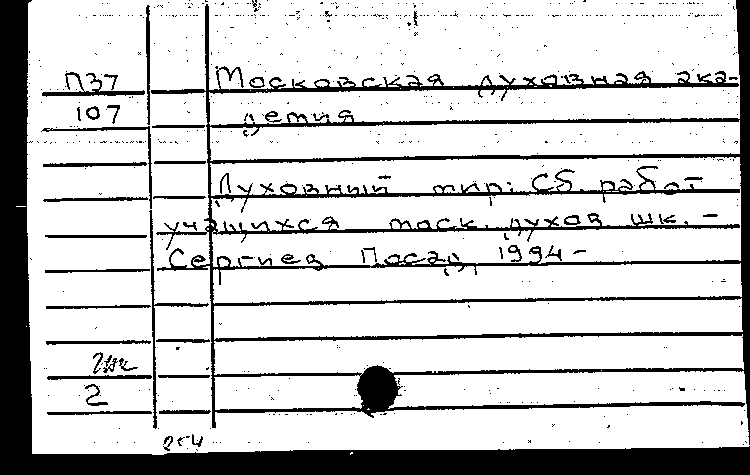 П37 Московская духовная ака-
107 демия
Духовный мир: Сб. работ
учащихся моск. духов. шк. -
Сергиев Посад, 1994 -
2